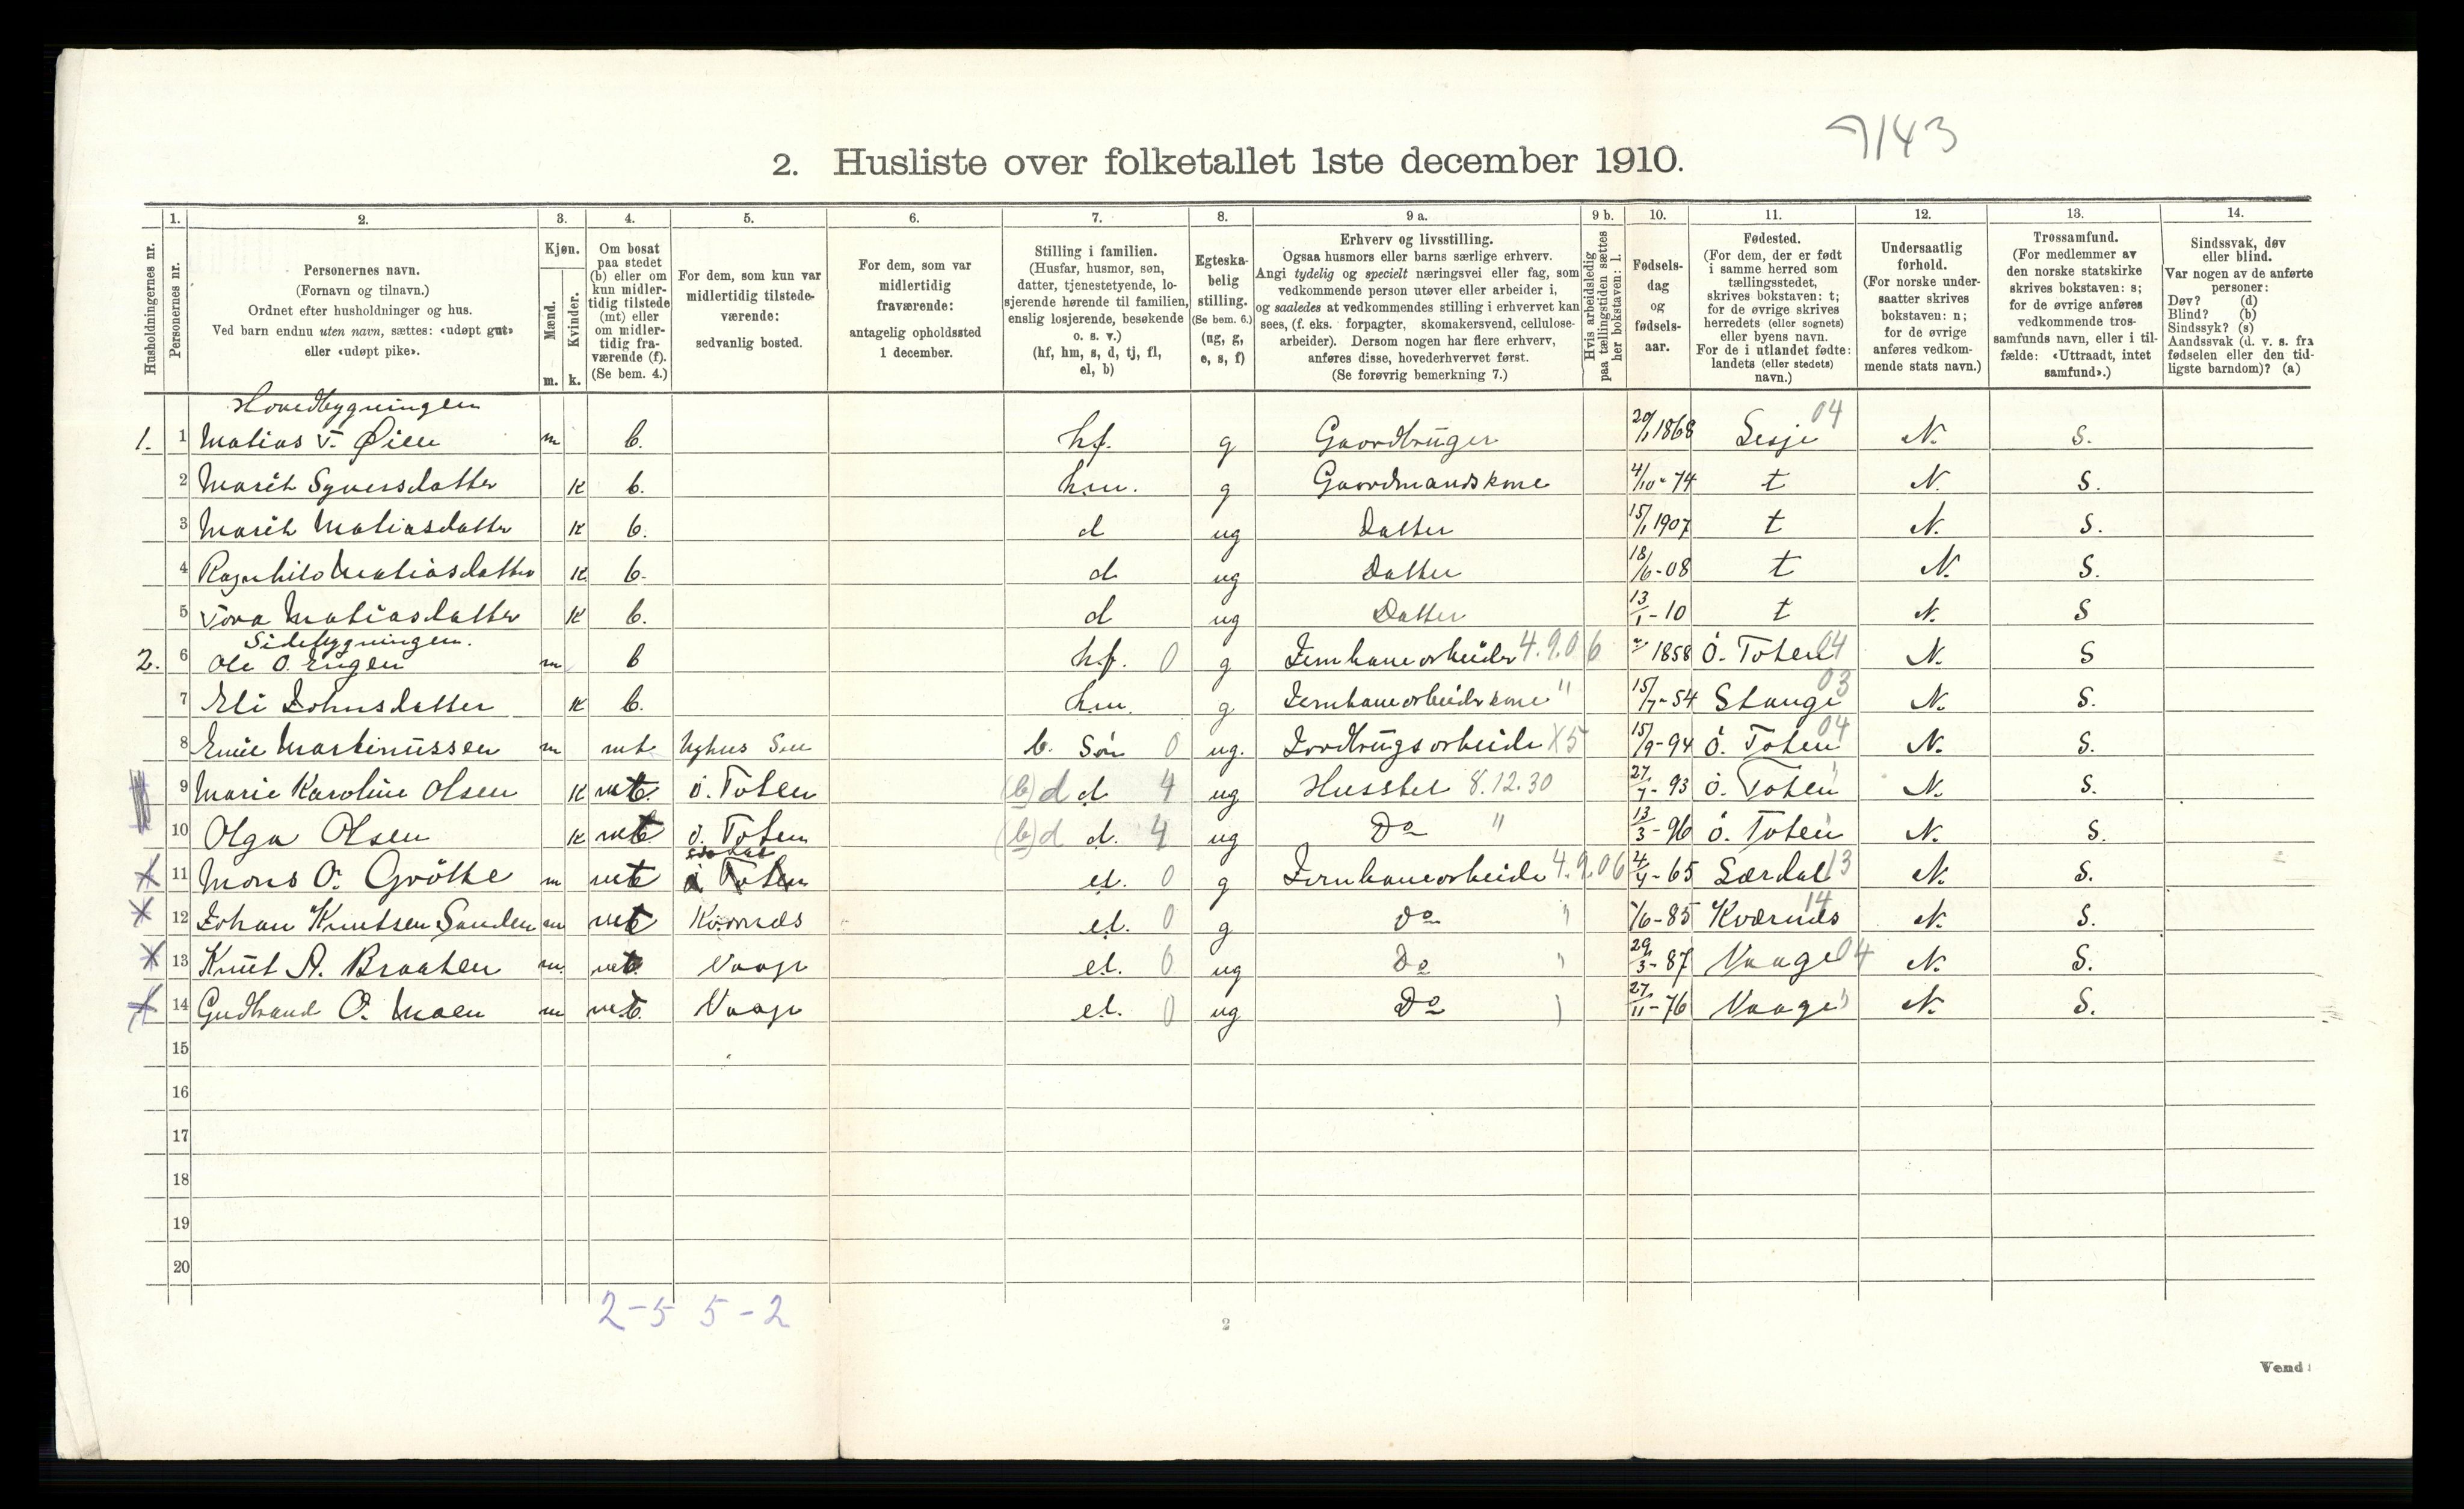 7143
2. Husliste over folketallet 1ste december 1910.
1. 2. 3. 4. 5. 6. 7. 8. 9 a. 9 b. 10. 11. 12. 13. 14.
Husholdningernes nr.
Personernes nr.
Personernes navn.
(Fornavn og tilnavn.)
Ordnet efter husholdninger og hus.
Ved barn endnu uten navn, sættes: «udøpt gut»
eller «udøpt pike».
Kjøn.
Mænd.
Kvinder.
m. k.
Om bosat
paa stedet
(b) eller om
kun midler-
tidig tilstede
(mt) eller
om midler-
tidig fra-
værende (f).
(Se bem. 4.)
For dem, som kun var
midlertidig tilstede-
værende:
sedvanlig bosted.
For dem, som var
midlertidig
fraværende:
antagelig opholdssted
1 december.
Stilling i familien.
(Husfar, husmor, søn,
datter, tjenestetyende, lo-
sjerende hørende til familien,
enslig losjerende, besøkende
o. s. v.)
(hf, hm, s, d, tj, fl,
el, b)
Egteska-
belig
stilling.
(Se bem. 6.)
(ug, g,
e, s, f)
Erhverv og livsstilling.
Ogsaa husmors eller barns særlige erhverv.
Angi tydelig og specielt næringsvei eller fag, som
vedkommende person utøver eller arbeider i,
og saaledes at vedkommendes stilling i erhvervet kan
sees, (f. eks. forpagter, skomakersvend, cellulose-
arbeider). Dersom nogen har flere erhverv,
anføres disse, hovederhvervet først.
(Se forøvrig bemerkning 7.)
Hvis arbeidsledig
paa tællingstiden sættes
her bokstaven: l.
Fødsels-
dag
og
fødsels-
aar.
Fødested.
(For dem, der er født
i samme herred som
tællingsstedet,
skrives bokstaven: t;
for de øvrige skrives
herredets (eller sognets)
eller byens navn.
For de i utlandet fødte:
landets (eller stedets)
navn.)
Undersaatlig
forhold.
(For norske under-
saatter skrives
bokstaven: n;
for de øvrige
anføres vedkom-
mende stats navn.)
Trossamfund.
(For medlemmer av
den norske statskirke
skrives bokstaven: s;
for de øvrige anføres
vedkommende tros-
samfunds navn, eller i til-
fælde: «Uttraadt, intet
samfund».)
Sindssvak, døv
eller blind.
Var nogen av de anførte
personer:
Døv? (d)
Blind? (b)
Sindssyk? (s)
Aandssvak (d. v. s. fra
fødselen eller den tid-
ligste barndom)? (a)
Hovedbygningen
1. 1 Matias T. Øien m b. hf. g Gaardbruger 20/1 1868 Lesje 04 N. S.
2 Marit Syversdatter k b. hm. g Gaardmandskone 4/10-74 t N. S.
3 Marit Matiasdatter k b. d ug Datter 15/1 1907 t N. S.
4 Ragnhild Matiasdatter k b. d ug Datter 18/6-08 t N. S.
5 Tora Matiasdatter k b. d ug Datter 13/1-10 t N. S
Sidebygningen.
2. 6 Ole O. Engen m b hf. 0 g Jernbanearbeider 4.9.06 1858 Ö. Toten 04 N. S
7 Eli Johnsdatter k b. hm. g Jernbanearbeiderkone " 15/7-54 Stange 03 N. S.
8 Emil Martinussen m mt Nyhus b. Søn 0 ug. Jordbrugsarbeide X5 15/9-94 Ö. Toten 04 N. S.
9 Marie Karoline Olsen k mt. Ö. Toten (b) d d 4 ug Husstel 8.12.30 27/7-93 Ö. Toten " N. S.
10 Olga Olsen k mt Ö. Toten (b) d d. 4 ug Do " 13/3-96 Ö. Toten N. S.
11 Mons O. Gröthe m mt Ö Toten el. 0 g Jernbanearbeide 4.9.06 4/4-65 Lærdal 13 N. S.
12 Johan Knutsen Sanden m mt Kværnes el. 0 g Do " /6-85 Kværnes 14 N. S.
13 Knut A. Braaten m. mt. Vaage el. 0 ug Do " 29/3-87 Vaage 04 N. S.
14 Gudbrand O. Moen m mt. Vaage el. 0 ug Do " 27/11-76 Vaage " N. S.
15
16
17
18
19
20
2-5 5-2
2
Vend!